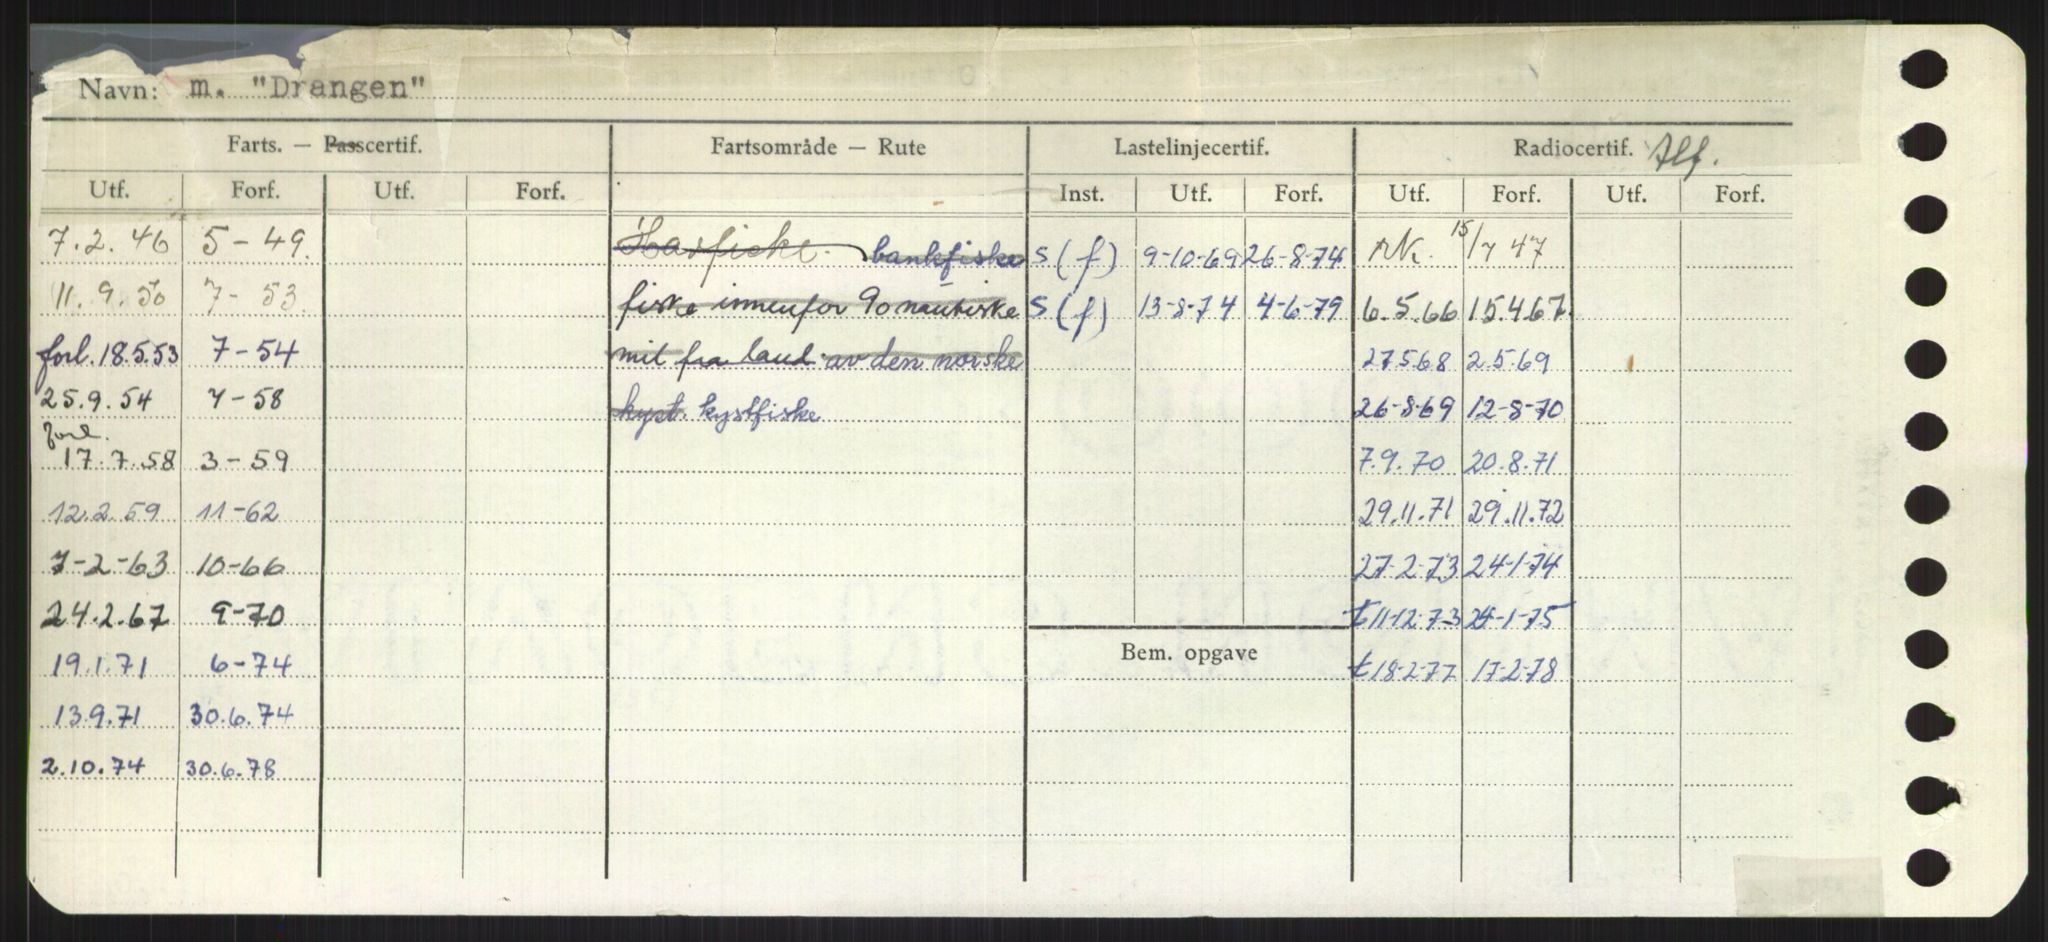 Navn: m. "Drangen"
Farts. — Passcertif. Fartsområde — Rute Lastelinjecertif. Radiocertif. Tlf.
Utf. Forf. Utf. Forf. Inst. Utf. Forf. Utf. Forf. Utf. Forf.
7.2.46 5-49. Havfiske. bankfiske S(f) 9-10-69 26-8-74 15/7 47
11.9.50 7-53. fiske innenfor 90 nautiske S(f) 13-8-74 4-6-79 6.5.66 15.4.67.
forl. 18.5.53 7-54 mil fra land av den norske 27.5.68 2.5.69
25.9.54 7-58 kyst. kystfiske 26-8-69 12-8-70
forl.
17.7.58 3-59 7.9.70 20.8.71
12.2.59 11-62 29.11.71 29.11.72
7-2-63 10-66 27-2-73 24-1-74
24.2.67 9-70 t 11-12-73 24-1-75
19.1.71 6-74 Bem. opgave t 18-2-77 17-2-78
13.9.71 30.6.74
2.10.74 30.6.78